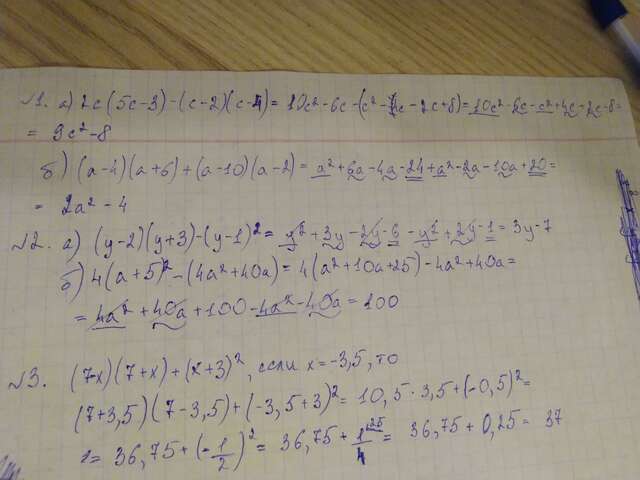 №1. а) 2c(5c-3)-(c-2)(c-4)= 10c²-6c-(c²-4c-2c+8)=10c²-6c-c²+4c-2c-8=
= 9c²-8
б) (a-4)(a+6)+(a-10)(a-2)= a²+6a-4a-24+a²-2a-10a+20=
= 2a²-4
№2. а) (y-2)(y+3)-(y-1)²= y²+3y-2y-6-y²+2y-1= 3y-7
б) 4(a+5)²-(4a²+40a)= 4(a²+10a+25)-4a²+40a=
= 4a²+40a+100-4a²-40a=100
№3. (7-x)(7+x)+(x+3)², если x=-3,5, то
(7+3,5)(7-3,5)+(-3,5+3)²= 10,5·3,5+(-0,5)²=
= 36,75+(-1/2)²= 36,75+1/4= 36,75+0,25= 37